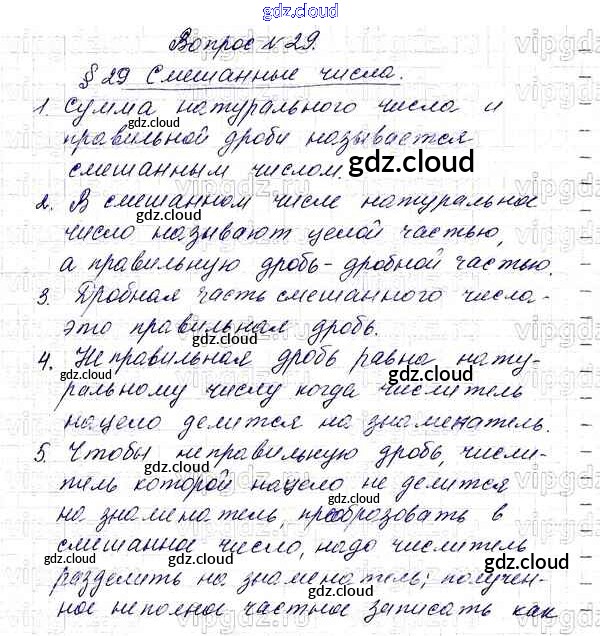 gdz.cloud
Вопрос №29.
§29 Смешанные числа.
1. Сумма натурального числа и
правильной дроби называется
смешанным числом.
2. В смешанном числе натуральное
число называют целой частью,
а правильную дробь - дробной частью.
3. Дробная часть смешанного числа -
это правильная дробь.
4. Неправильная дробь равна нату-
ральному числу когда числитель
нацело делится на знаменатель.
5. Чтобы неправильную дробь, числи-
тель которой нацело не делится
на знаменатель, преобразовать в
смешанное число, надо числитель
разделить на знаменатель; получен-
ное неполное частное записать как